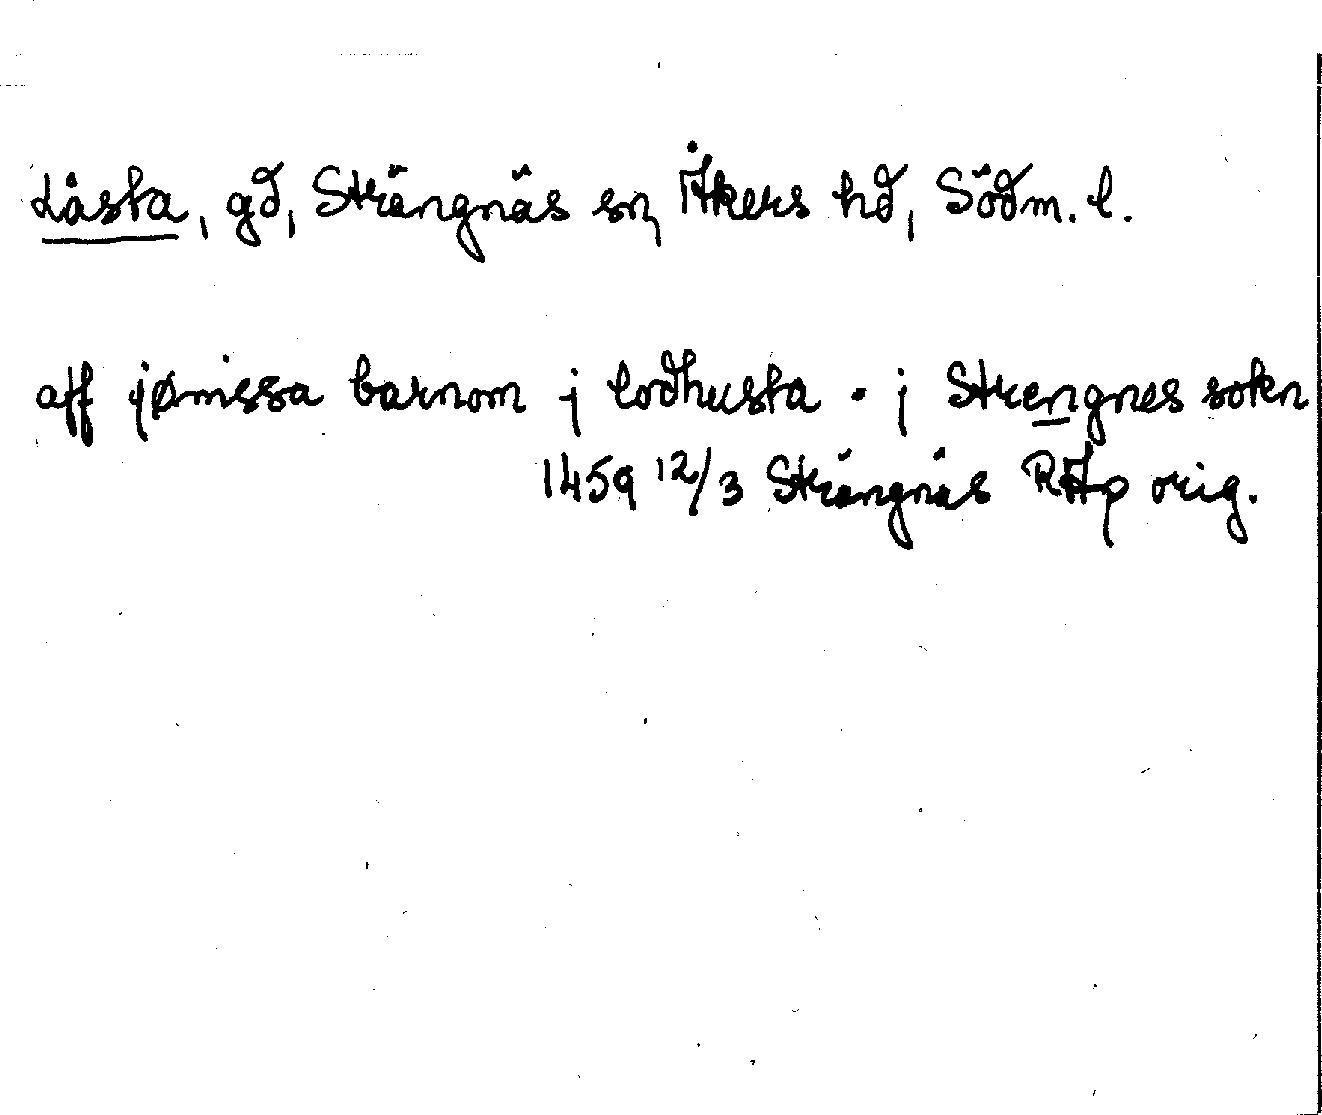 Låsta, gd, Strängnäs sn, Åkers hd, Södm. l.
aff jønissa barnom j lodhusta · j Strengnes sokn
1459 12/3 Strängnäs RAp orig.